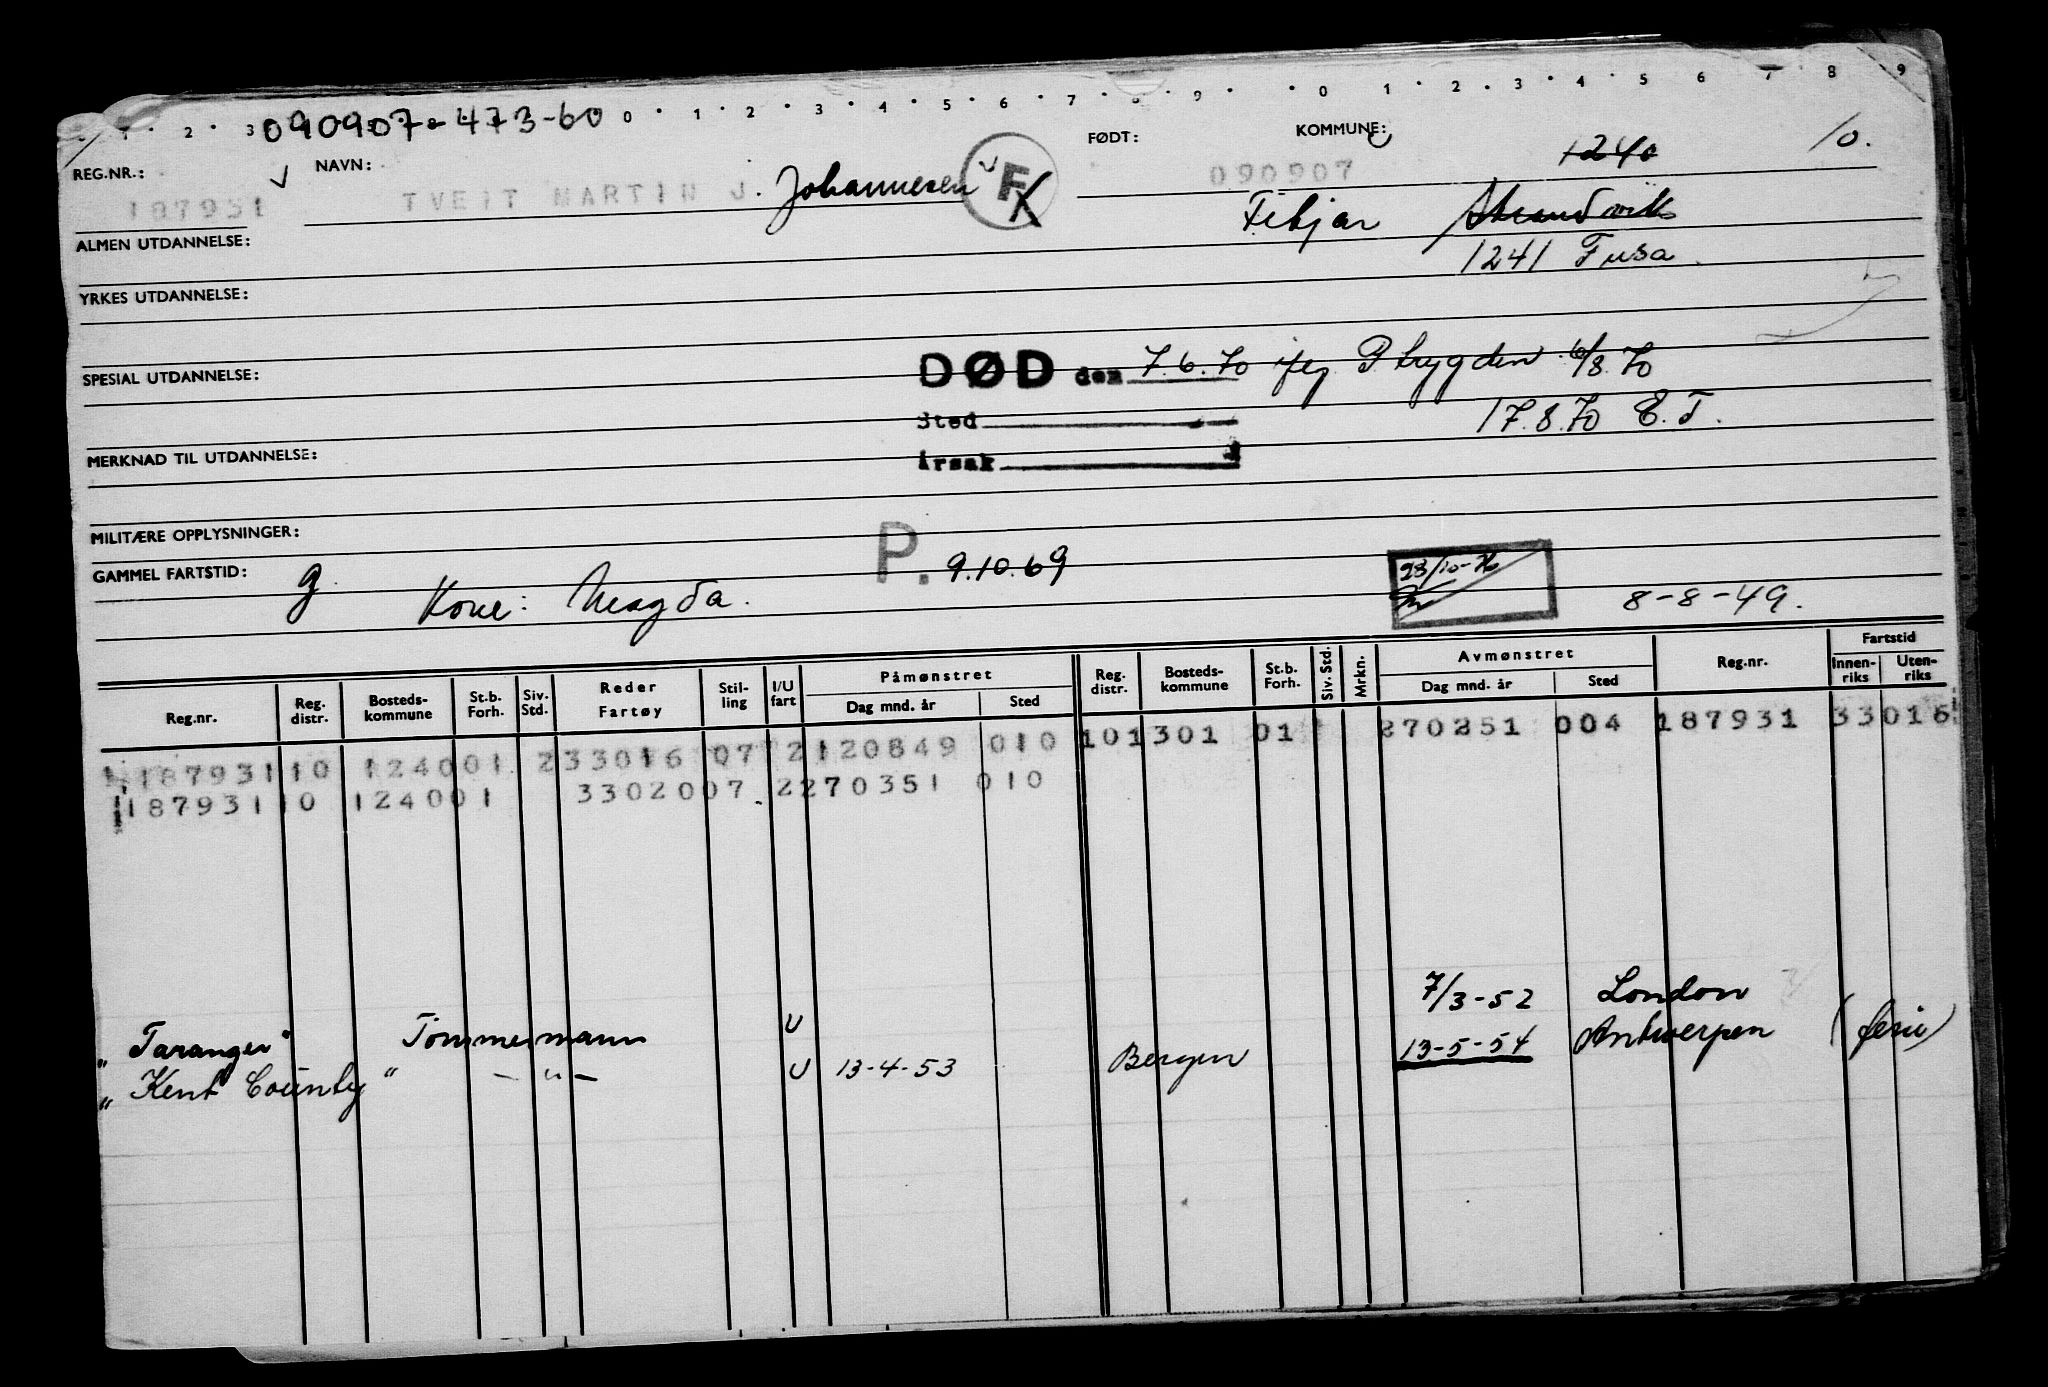 1 · 2 · 3 0 · 1 · 2 · 3 · 4 · 5 · 6 · 7 · 8 · 9 · · 0 · 1 · 2 · 3 · 4 · 5 6 7 8 9
090907-473-60
REG.NR.: NAVN: FØDT: KOMMUNE: 1240 10.
187931 TVEIT MARTIN J. Johannesen F 090907
ALMEN UTDANNELSE: Strandvik
1241 Fusa
YRKES UTDANNELSE:
SPESIAL UTDANNELSE: DØD den 7.6.70 6/8.70
Sted 17.8.70 E.T.
MERKNAD TIL UTDANNELSE: Årsak
MILITÆRE OPPLYSNINGER:
GAMMEL FARTSTID: g P. 9.10.69
Kone: Magda. 8-8-49.
Reg.nr. Reg. distr. Bosteds-kommune St.b. Forh. Siv. Std. Reder Fartøy Stil-ling I/U fart Påmønstret Dag mnd. år Sted Reg. distr. Bosteds-kommune St.b. Forh. Siv. Std. Mrkn. Avmønstret Dag mnd. år Sted Reg.nr. Fartstid Innen-riks Uten-riks
187931 10 1240 01 2 33016 07 2 120849 010 10 1301 01 270251 004 187931 33016
187931 10 1240 01 33020 07 2 270351 010
"Taranger" Tømmermann U 7/3-52 London
"Kent County" - " - U 13-4-53 Bergen 13-5-54 Antwerpen (ferie)